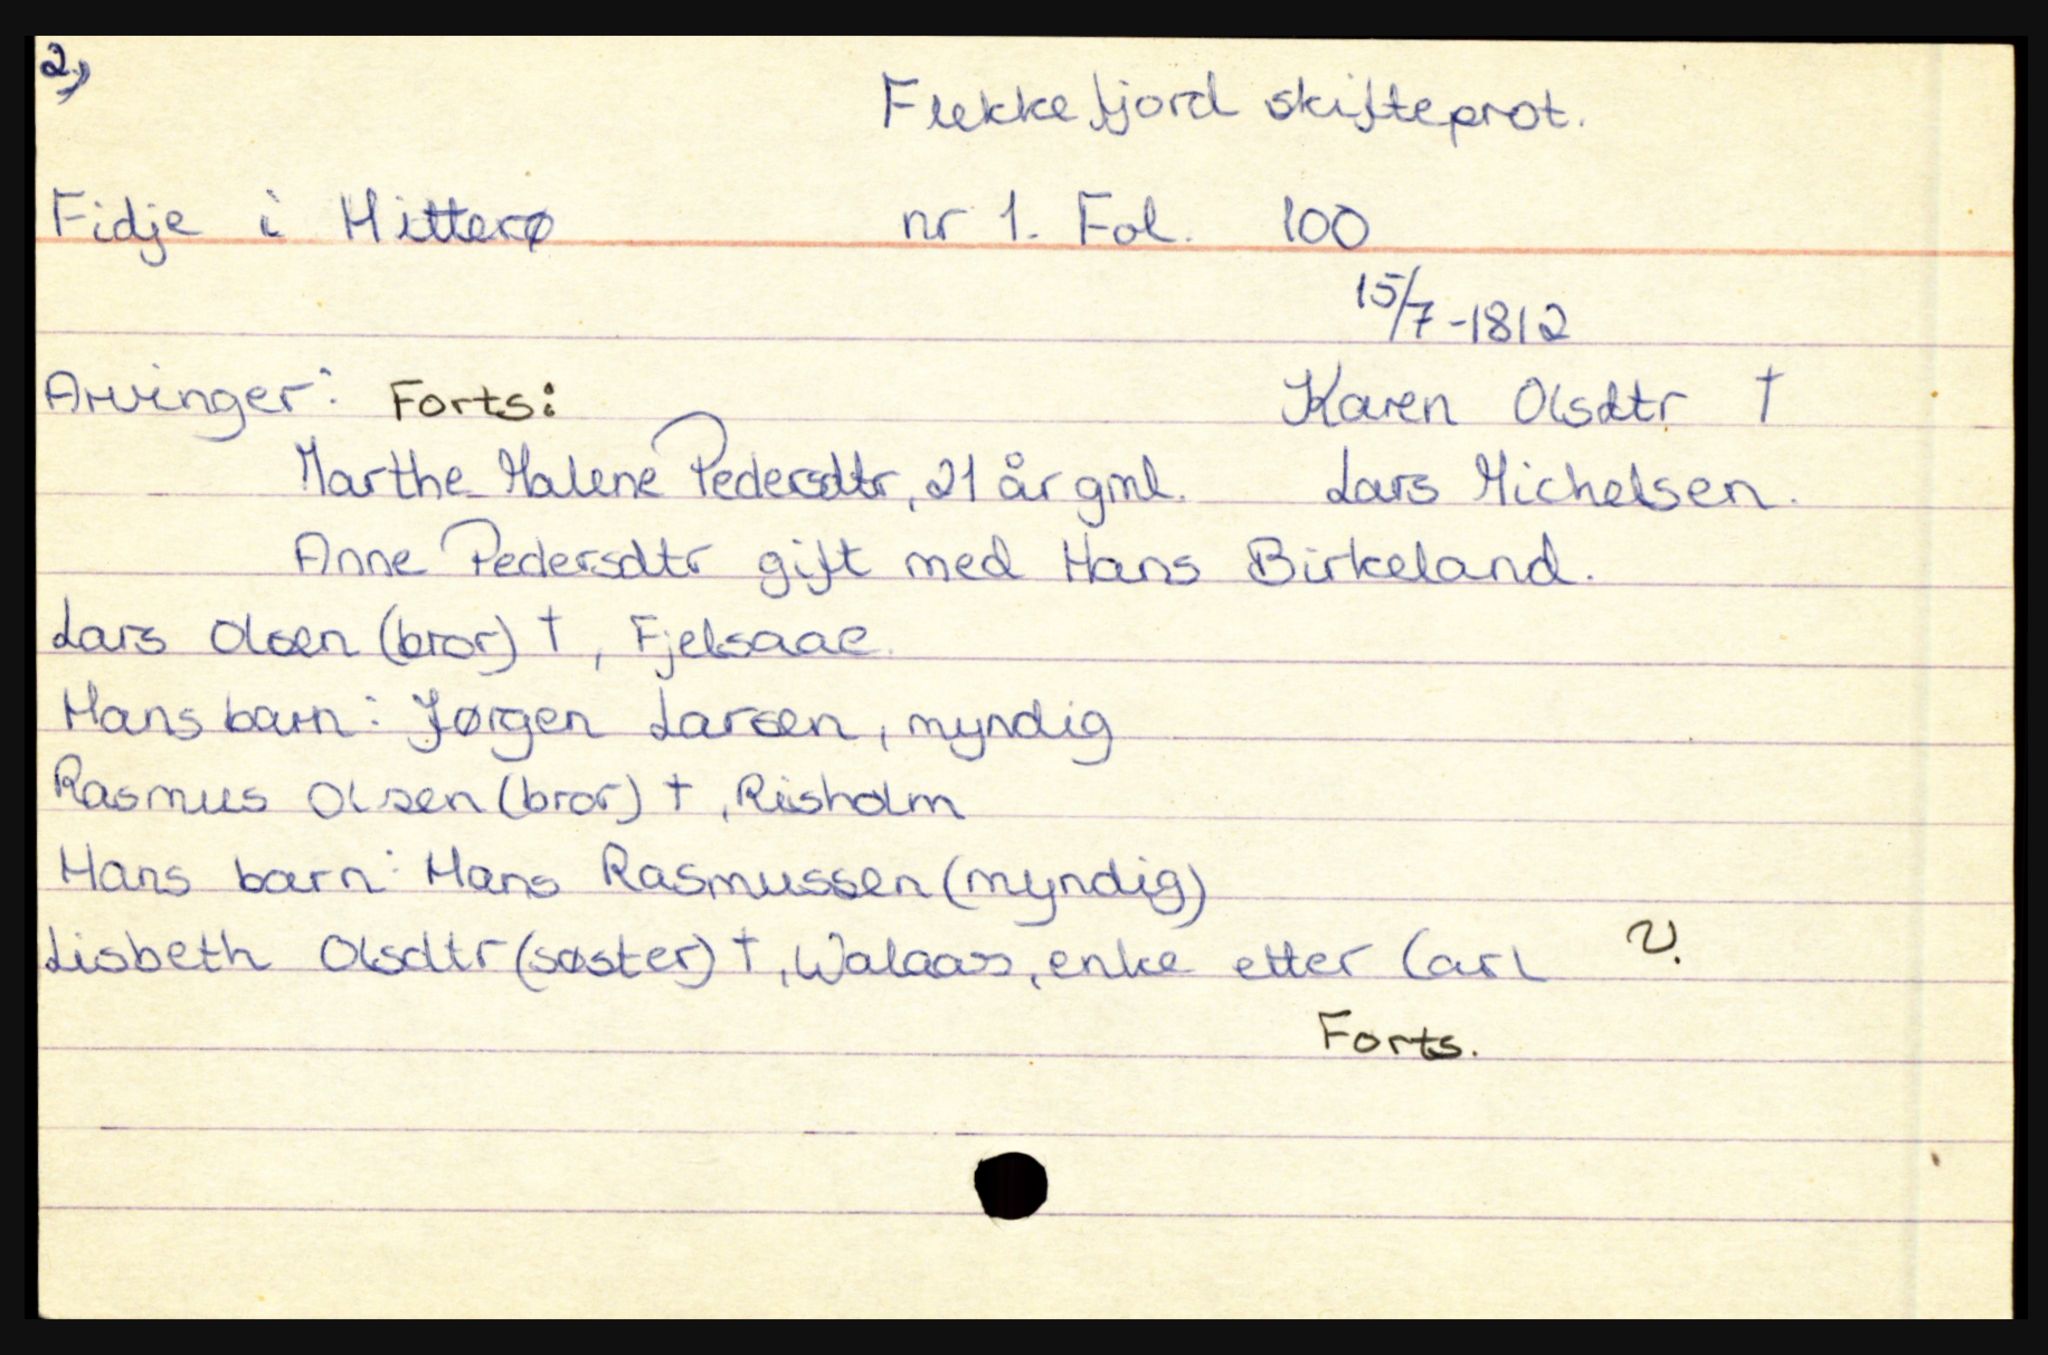 2,)
Flekkefjord skifteprot.
Fidje i Hitterø nr 1. Fol. 100
15/7-1812
Arvinger: Forts: Karen Olsdtr †
Marthe Malene Pedersdtr, 21 år gml. Lars Michelsen.
Anne Pedersdtr gift med Hans Birkeland.
Lars Olsen (bror) †, Fjelsaae.
Hans barn: Jørgen Larsen, myndig
Rasmus Olsen (bror) †, Riisholm
Hans barn: Hans Rasmussen (myndig)
Lisbeth Olsdtr (søster) †, Walaas, enke etter Carl
Forts.